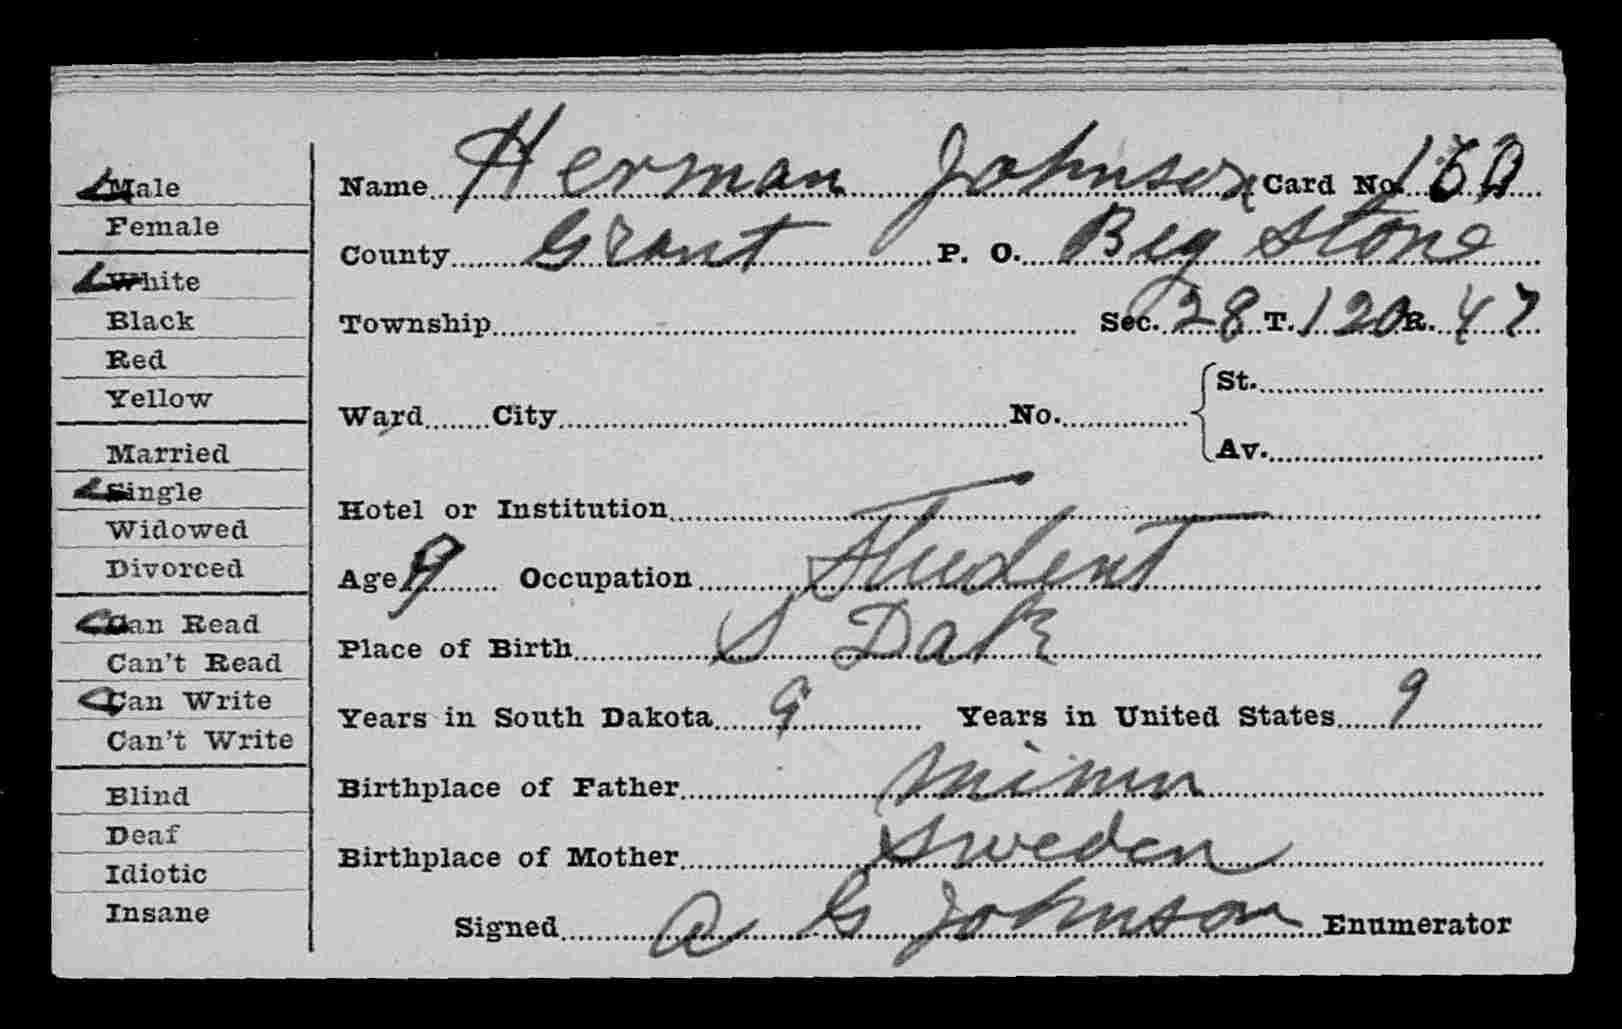 Male
Female
White
Black
Red
Yellow
Married
Single
Widowed
Divorced
Can Read
Can't Read
Can Write
Can't Write
Blind
Deaf
Idiotic
Insane
Name Herman Johnson Card No.
County Grant P. O. Big Stone
Township Sec. 28 T. 120 R. 47
Ward City No. St.
Av.
Hotel or Institution
Age 9 Occupation Student
Place of Birth S Dak
Years in South Dakota 9 Years in United States 9
Birthplace of Father Minn
Birthplace of Mother Sweden
Signed A G Johnson Enumerator